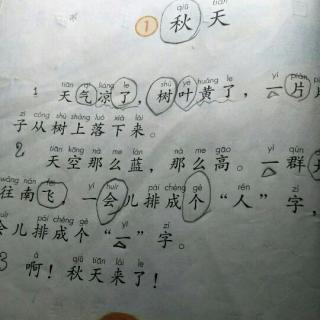 qiū tiān
1 秋天
tiān qì liáng le shù yè huáng le yí piàn piàn
1 天气凉了，树叶黄了，一片片
zǐ cóng shù shàng luò xià lái
子从树上落下来。
tiān kōng nà me lán nà me gāo yì qún
2 天空那么蓝，那么高。一群
wǎng nán fēi yí huìr pái chéng gè rén zì
往南飞，一会儿排成个“人”字，
huìr pái chéng gè yī zì
会儿排成个“一”字。
ā qiū tiān lái le
3 啊！秋天来了！